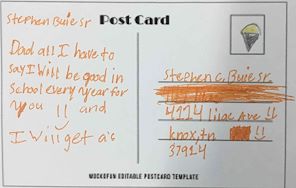 Stephen Buie Sr
Post Card
Dad all I have to
say I Will be good in
School every year for
you !! and
I Will get a's
Stephen C. Buie Sr.
4114 lilac Ave !!
knox, tn !!
37914
MUCKOFUN EDITABLE POSTCARD TEMPLATE